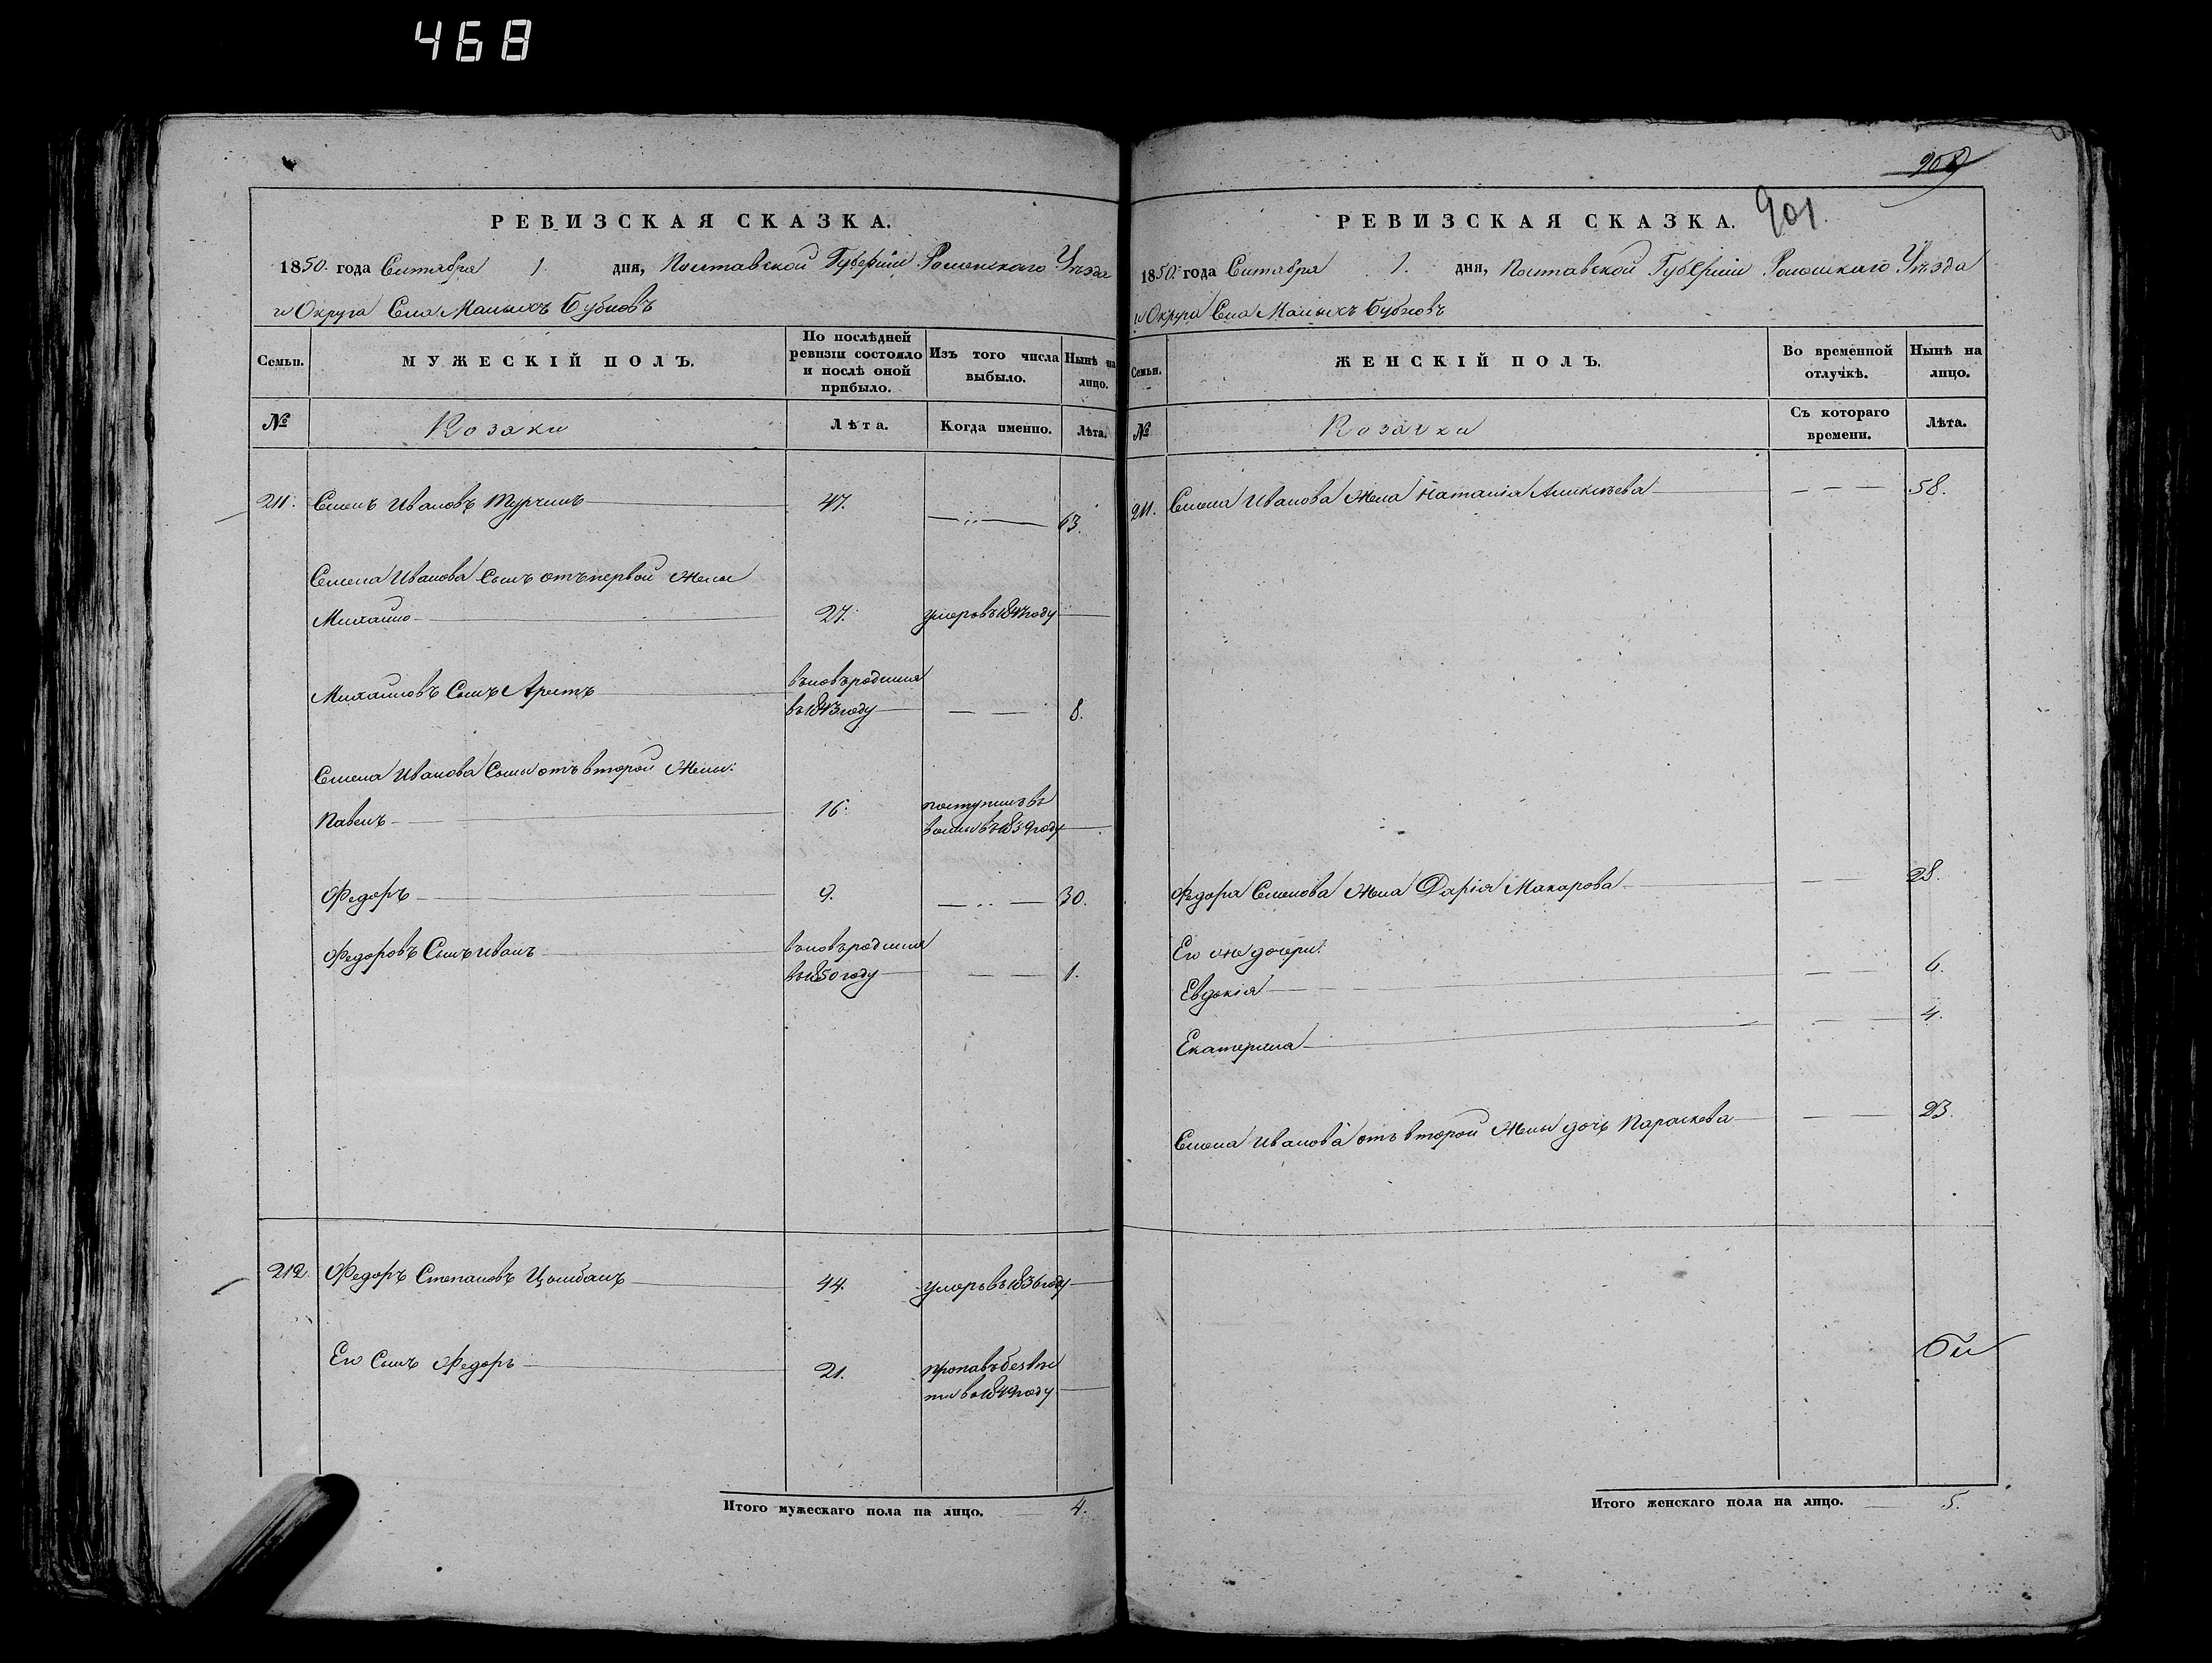 468
РЕВИЗСКАЯ СКАЗКА.
1850. года Сентября 1. дня, Полтавской Губерніи Роменскаго Уѣзда
и Округа Села Малыхъ Бубновъ
Семьи.
МУЖЕСКІЙ ПОЛЪ.
По послѣдней ревизіи состояло и послѣ оной прибыло.
Изъ того числа выбыло.
Нынѣ на лицо.
№
Козаки
Лѣта.
Когда именно.
Лѣта.
211. Семенъ Ивановъ Турчинъ 47. 63.
Семена Иванова Сынъ отъ первой Жены
Михайло 27. умеръ въ 1847 году
Михайловъ Сынъ вновь родился
въ 1843 году 8.
Семена Иванова Сыны отъ второй Жены:
Павелъ 16. поступилъ въ
въ 1839 году
Федоръ 9. 30.
Федоровъ Сынъ Иванъ вновь родился
въ 1850 году 1.
212. Федоръ Степановъ Цымбалъ 44. умеръ въ 1836 году
Его Сынъ Федоръ 21. пропавъ безвѣ
сти въ 1849 году
Итого мужескаго пола на лицо. 4.
908
901.
РЕВИЗСКАЯ СКАЗКА.
1850. года Сентября 1. дня, Полтавской Губерніи Роменскаго Уѣзда
и Округа Села Малыхъ Бубновъ
Семьи.
ЖЕНСКІЙ ПОЛЪ.
Во временной отлучкѣ.
Нынѣ на лицо.
№
Козачки
Съ котораго времени.
Лѣта.
211. Семена Иванова Жена Наталія Алексѣева 58.
Федора Семенова Жена Дарія Макарова 28.
Его же дочери:
Евдокія 6.
Екатерина 4.
Семена Иванова отъ второй Жены дочь Параскева 23.
Итого женскаго пола на лицо. 5.